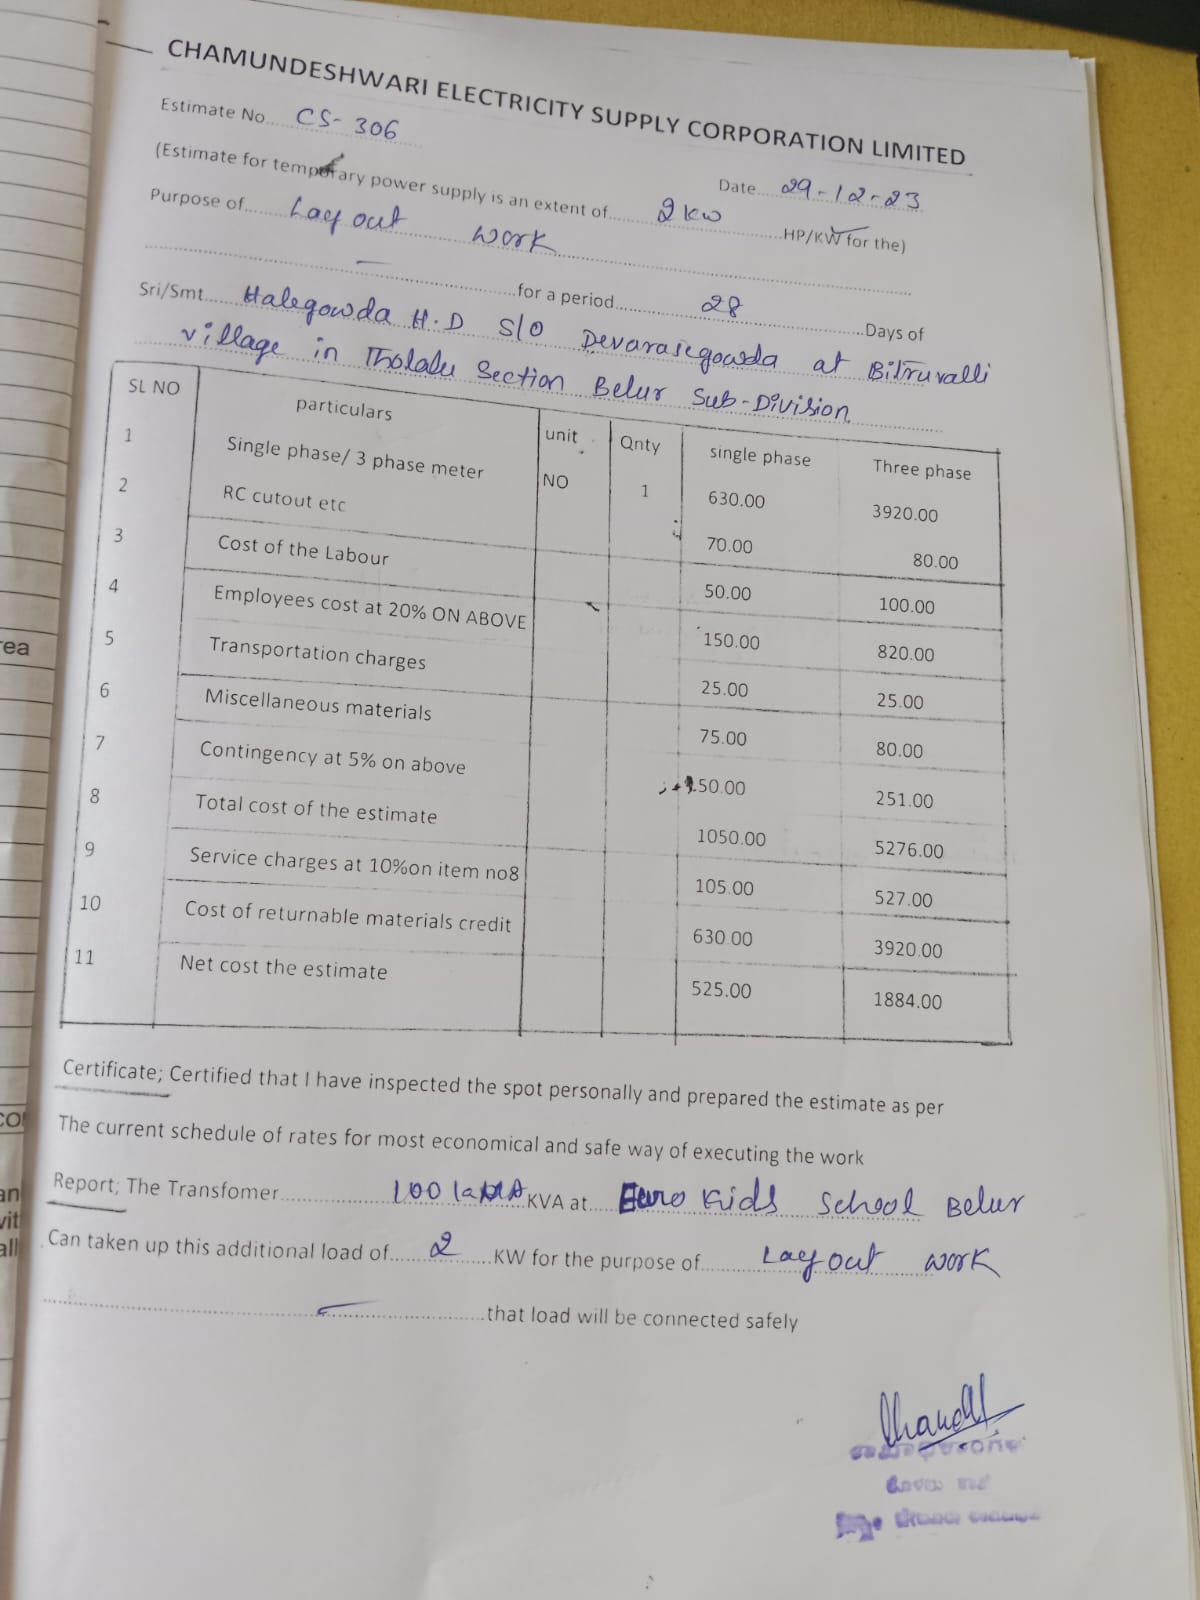 CHAMUNDESHWARI ELECTRICITY SUPPLY CORPORATION LIMITED
Estimate No.... CS-306
Date.... 29-12-23
(Estimate for temporary power supply is an extent of.... 2kw ....HP/KW for the)
Purpose of.... Lay out work
....for a period.... 28 ....Days of
Sri/Smt.... Halegowda H.D S/O Devarasegowda at Bitruvalli
village in Tholalu Section Belur Sub-Division
SL NO particulars unit Qnty single phase Three phase
1 Single phase/ 3 phase meter NO 1 630.00 3920.00
2 RC cutout etc 70.00 80.00
3 Cost of the Labour 50.00 100.00
4 Employees cost at 20% ON ABOVE 150.00 820.00
5 Transportation charges 25.00 25.00
6 Miscellaneous materials 75.00 80.00
7 Contingency at 5% on above 50.00 251.00
8 Total cost of the estimate 1050.00 5276.00
9 Service charges at 10%on item no8 105.00 527.00
10 Cost of returnable materials credit 630.00 3920.00
11 Net cost the estimate 525.00 1884.00
Certificate; Certified that I have inspected the spot personally and prepared the estimate as per
The current schedule of rates for most economical and safe way of executing the work
Report; The Transfomer.... 100 KVA at.... Euro Kids School Belur
Can taken up this additional load of.... 2 ....KW for the purpose of.... Lay out work
....that load will be connected safely